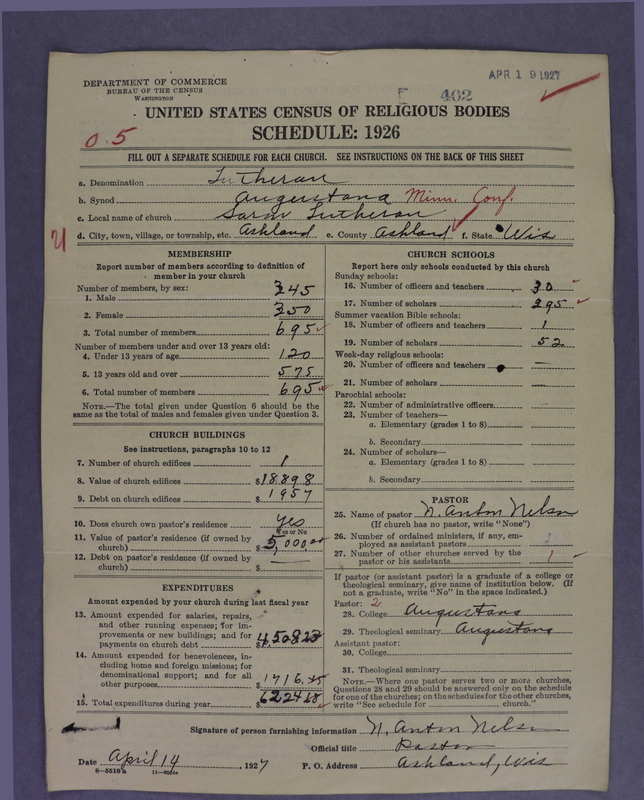 APR 19 1927
DEPARTMENT OF COMMERCE
BUREAU OF THE CENSUS
WASHINGTON
402
UNITED STATES CENSUS OF RELIGIOUS BODIES
SCHEDULE: 1926
0.5
FILL OUT A SEPARATE SCHEDULE FOR EACH CHURCH. SEE INSTRUCTIONS ON THE BACK OF THIS SHEET
a. Denomination Lutheran
b. Synod Augustana Minn. Conf.
c. Local name of church Saron Lutheran
d. City, town, village, or township, etc. Ashland e. County Ashland f. State Wis
MEMBERSHIP
Report number of members according to definition of
member in your church
Number of members, by sex:
1. Male 345
2. Female 350
3. Total number of members 695
Number of members under and over 13 years old:
4. Under 13 years of age 120
5. 13 years old and over 575
6. Total number of members 695
NOTE.—The total given under Question 6 should be the
same as the total of males and females given under Question 3.
CHURCH BUILDINGS
See instructions, paragraphs 10 to 12
7. Number of church edifices 1
8. Value of church edifices $18,898
9. Debt on church edifices $1957
10. Does church own pastor's residence yes
Yes or No
11. Value of pastor's residence (if owned by
church) $5,000.00
12. Debt on pastor's residence (if owned by
church) $ —
EXPENDITURES
Amount expended by your church during last fiscal year
13. Amount expended for salaries, repairs,
and other running expenses; for im-
provements or new buildings; and for
payments on church debt $4508.23
14. Amount expended for benevolences, in-
cluding home and foreign missions; for
denominational support; and for all
other purposes $1716.
15. Total expenditures during year $
CHURCH SCHOOLS
Report here only schools conducted by this church
Sunday schools:
16. Number of officers and teachers 30
17. Number of scholars 295
Summer vacation Bible schools:
18. Number of officers and teachers 1
19. Number of scholars 52
Week-day religious schools:
20. Number of officers and teachers —
21. Number of scholars —
Parochial schools:
22. Number of administrative officers
23. Number of teachers—
a. Elementary (grades 1 to 8)
b. Secondary
24. Number of scholars—
a. Elementary (grades 1 to 8)
b. Secondary
PASTOR
25. Name of pastor N. Anton Nelson
(If church has no pastor, write "None")
26. Number of ordained ministers, if any, em-
ployed as assistant pastors
27. Number of other churches served by the
pastor or his assistants 1
If pastor (or assistant pastor) is a graduate of a college or
theological seminary, give name of institution below. (If
not a graduate, write "No" in the space indicated.)
Pastor: 2
28. College Augustana
29. Theological seminary Augustana
Assistant pastor:
30. College
31. Theological seminary
NOTE.—Where one pastor serves two or more churches,
Questions 28 and 29 should be answered only on the schedule
for one of the churches; on the schedules for the other churches,
write "See schedule for church."
Signature of person furnishing information N. Anton Nelson
Official title Pastor
Date April 14, 1927 P. O. Address Ashland, Wis